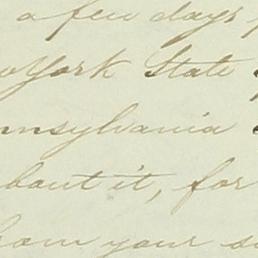 a few days
York State
nnsylvania
bout it, for
your